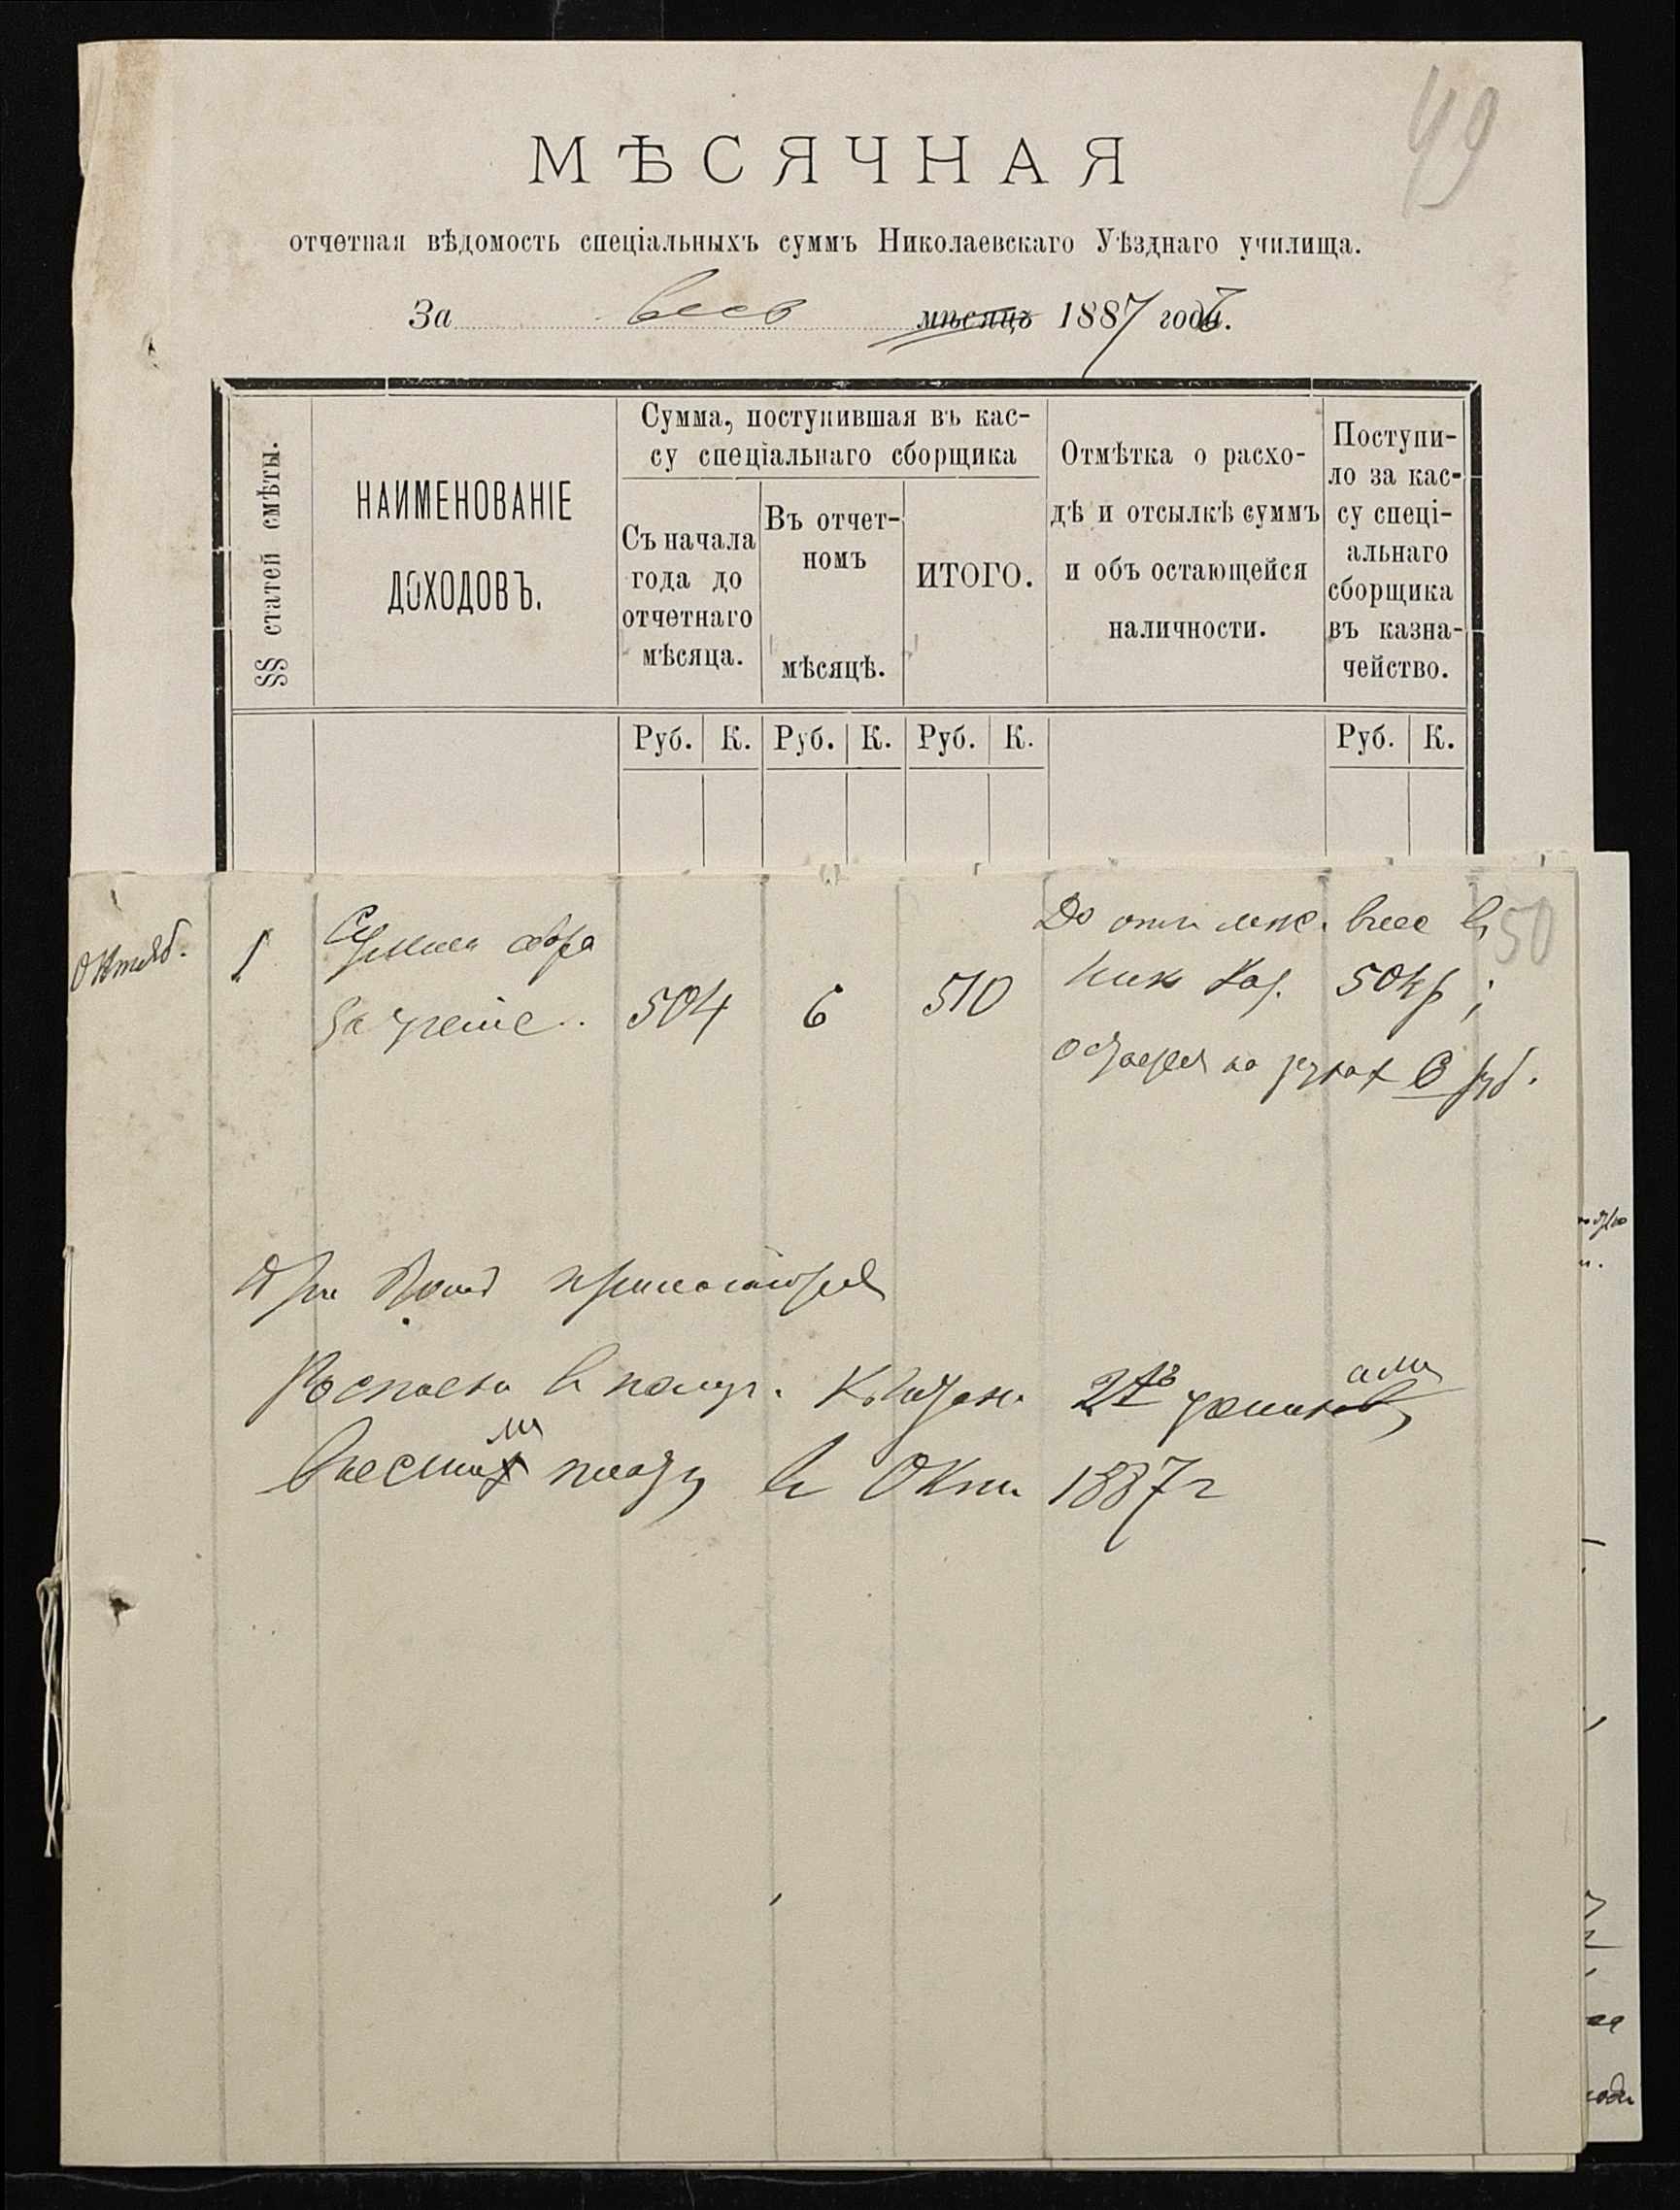 49
МѢСЯЧНАЯ
отчетная вѣдомость спеціальныхъ суммъ Николаевскаго Уѣзднаго училища.
За весь мѣсяцъ 1887 годъ.
§§ статей смѣты.
НАИМЕНОВАНІЕ
ДОХОДОВЪ.
Сумма, поступившая въ кас-
су спеціальнаго сборщика
Съ начала
года до
отчетнаго
мѣсяца.
Въ отчет-
номъ
мѣсяцѣ.
ИТОГО.
Отмѣтка о расхо-
дѣ и отсылкѣ суммъ
и объ остающейся
наличности.
Поступи-
ло за кас-
су спеці-
альнаго
сборщика
въ казна-
чейство.
Руб. К. Руб. К. Руб. К. Руб. К.
50
Октяб. 1 Сумма сбора
за ученіе.. 504 6 510
До отч. мѣс. внес. в
Ник Каз. 504 р;
остается на руках 6 руб.
При прилагаются
в получ. 2 учениками
внесшими плату в Окт. 1887 г